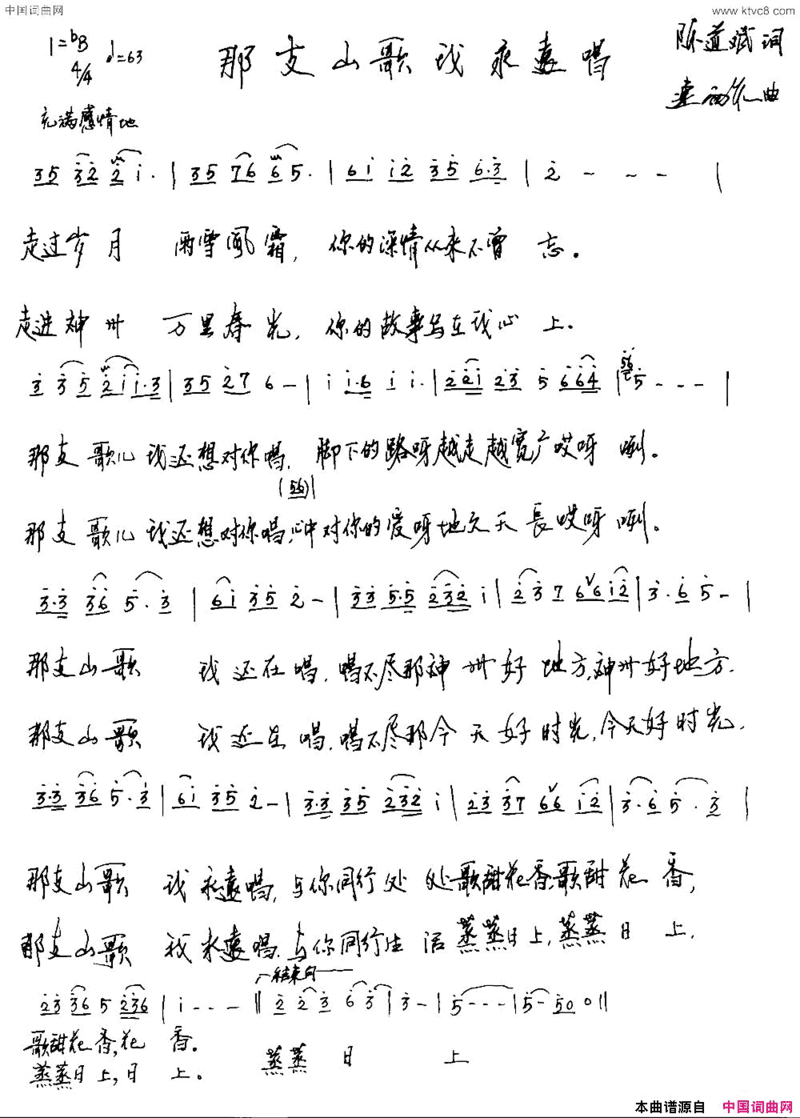 中国词曲网
www.ktvc8.com
1=bB 4/4 ♩=63
那支山歌我永远唱
陈道斌 词
曲
充满感情地
35 32 2 1· | 35 76 65· | 61 12 35 6·3 | 2 - - - |
走过岁月 雨雪風霜, 你的深情从来不曾 忘。
走进神州 万里春光, 你的故事写在我心 上.
3 35 211·3 | 35 27 6 - | 1 1·6 1 1· | 221 23 5 664 | 565 - - - |
那支歌儿我还想对你唱, 脚下的路呀越走越宽广哎呀 咧。
(56)
那支歌儿我还想对你唱,心中对你的爱呀地久天長哎呀咧。
3·3 36 5·3 | 61 35 2 - | 33 5·5 232 1 | 23 7 6612 | 3·6 5 - |
那支山歌 我还在唱,唱不尽那神州好地方,神州好地方.
那支山歌 我还在唱,唱不尽那今天好时光,今天好时光.
3·3 36 5·3 | 61 35 2 - | 3·3 35 232 1 | 23 37 66 12 | 3·6 5·3 |
那支山歌 我永遠唱,与你同行处处歌甜花香,歌甜花香,
那支山歌 我永遠唱.与你同行生活蒸蒸日上,蒸蒸日上.
结束句
23 36 5 236 | 1 - - - ‖ 2 2 3 63 | 3 - | 5 - - - | 5 - 50 0 ‖
歌甜花香,花香。
蒸蒸日上,日上。 蒸蒸日上
本曲谱源自 中国词曲网